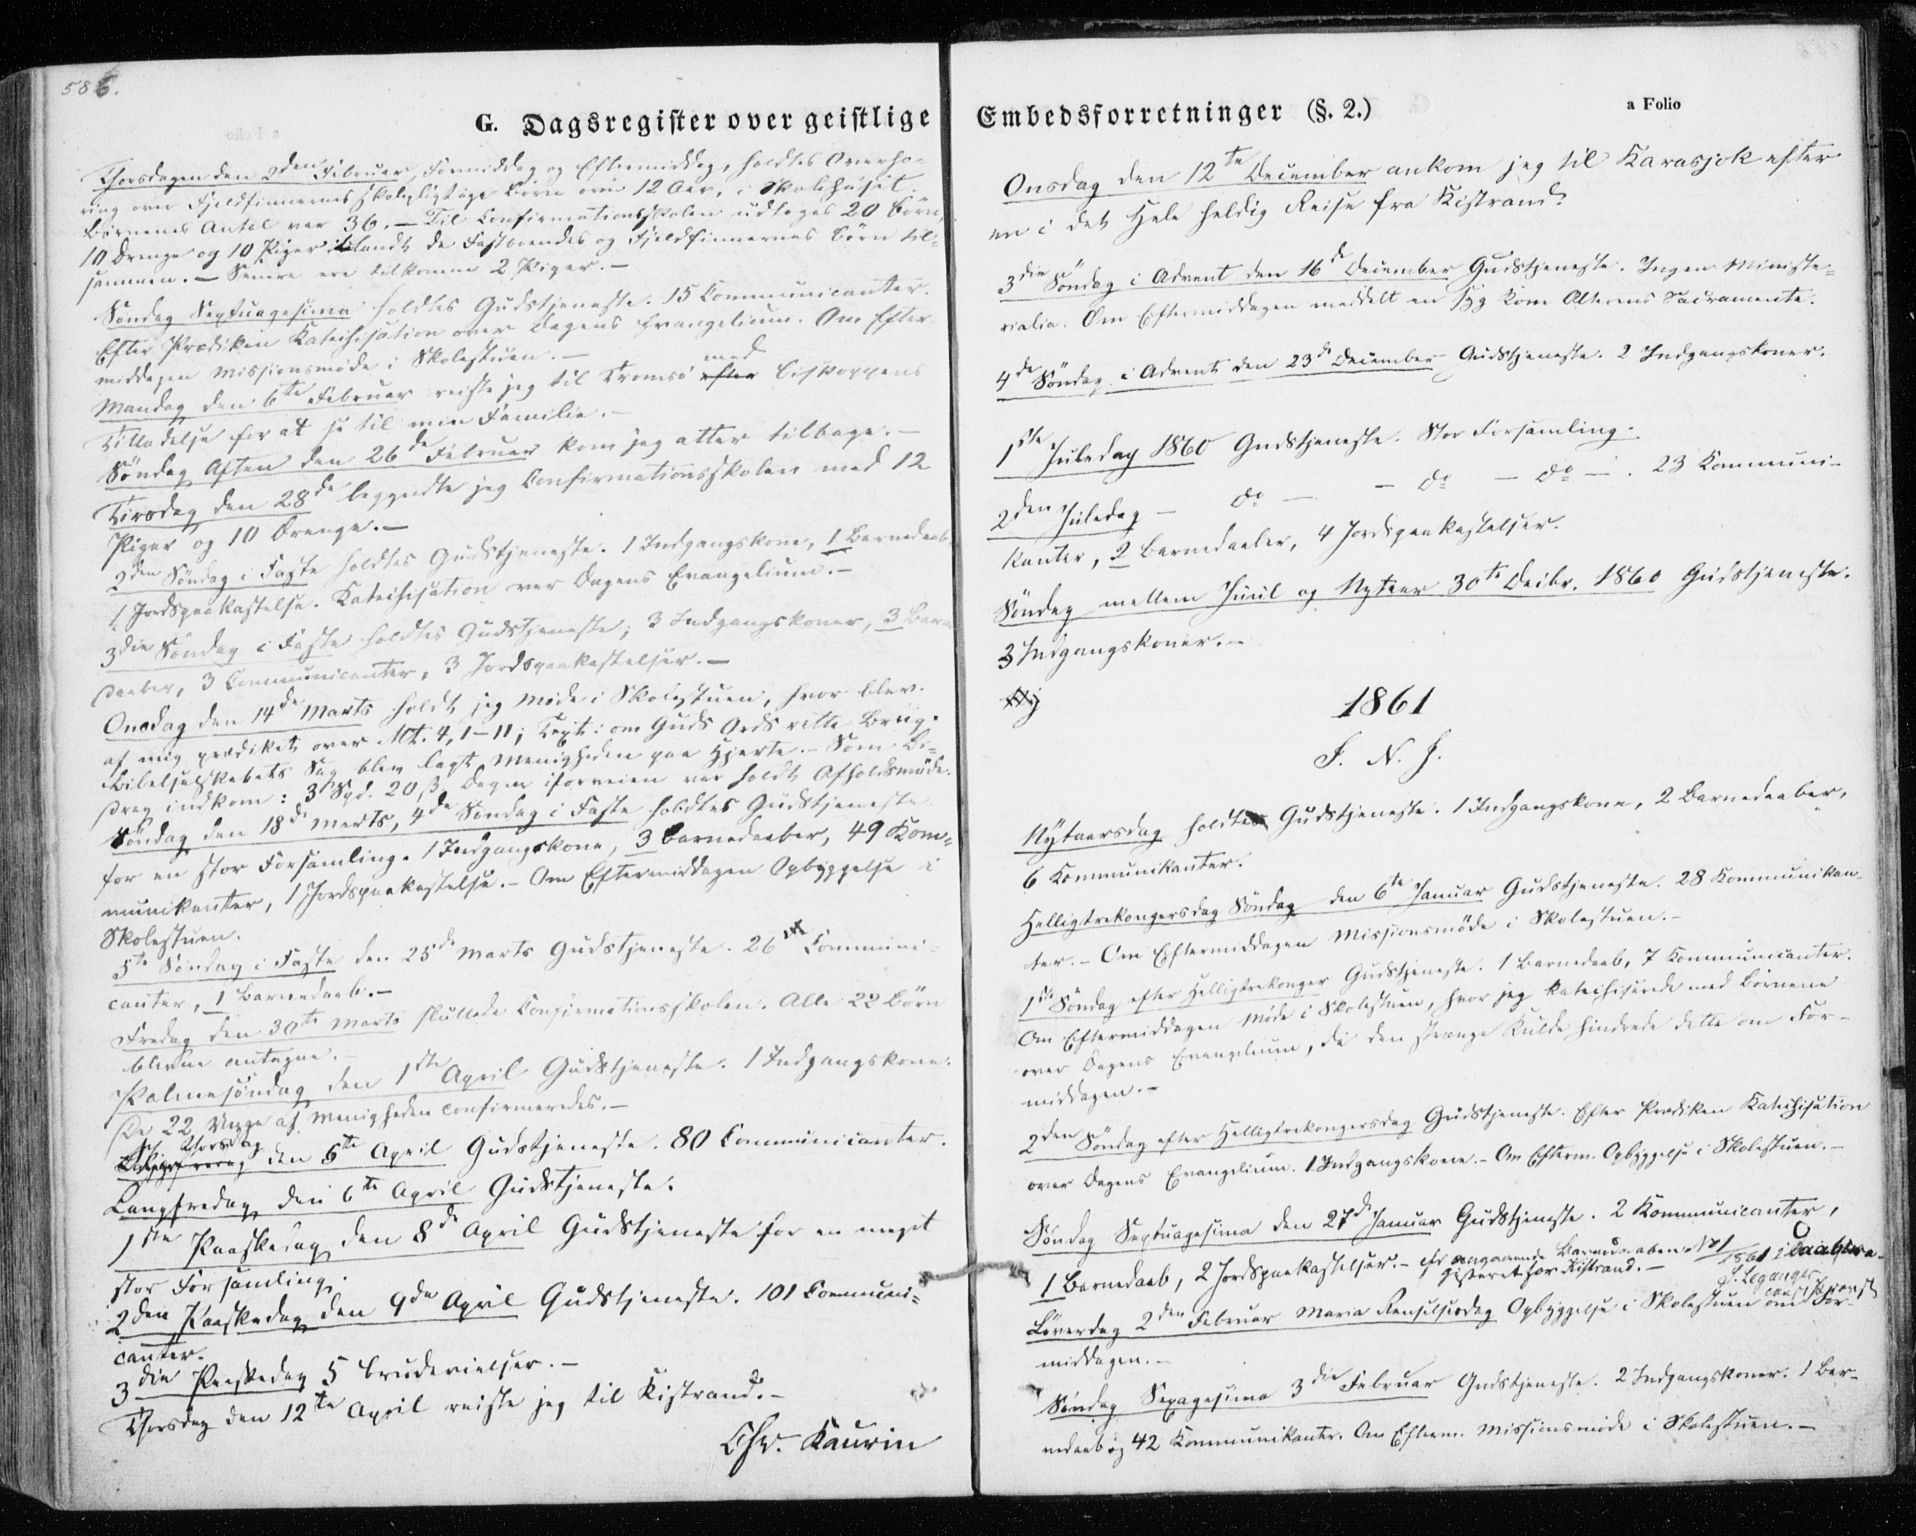 586.
G. Dagsregister over geistlige
Thorsdagen den 2den Februar, Formiddag og Eftermiddag, holdtes Overhø-
ring over Fjeldfinnernes skolepligtige Børn over 12 Aar, i Skolehuset.
Børnenes Antal var 36. – Til Confirmationsskolen udtoges 20 Børn,
10 Drenge og 10 Piger iblandt de Fastboendes og Fjeldfinnernes Børn til-
sammen. – Senere ere tilkomne 2 Piger. –
Søndag Septuagesima holdtes Gudstjeneste. 15 Communicanter.
Efter Prædiken Katechisation over Dagens Evangelium. Om Efter-
middagen Missionsmøde i Skolestuen. –
Mandag den 6te Februar reiste jeg til Tromsø efter med Biskoppens
Tilladelse for at se til min Familie. –
Søndag Aften den 26de Februar kom jeg atter tilbage. –
Tirsdag den 28de begyndte jeg Confirmationsskolen med 12
Piger og 10 Drenge. –
2den Søndag i Faste holdtes Gudstjeneste. 1 Indgangskone, 1 Barnedaab,
1 Jordspaakastelse. Katechisation over Dagens Evangelium. –
3die Søndag i Faste holdtes Gudstjeneste; 3 Indgangskoner, 3 Barne
daaber, 3 Communicanter, 3 Jordspaakastelser. –
Onsdag den 14de Marts holdt jeg Møde i Skolestuen, hvor blev
af mig prædiket over Mt. 4, 1–11; Text: om Guds Ords rette Brug.
Bibelselskabets Sag blev lagt Menigheden paa Hjerte. – Som Bi-
drag indkom: 3 Spd. 20 ß. Dagen iforveien var holdt Afholdsmøde.
Søndag den 18de Marts, 4de Søndag i Faste holdtes Gudstjeneste
for en stor Forsamling. 1 Indgangskone, 3 Barnedaaber, 49 Kom-
munikanter, 1 Jordspaakastelse. – Om Eftermiddagen Opbyggelse i
Skolestuen.
5te Søndag i Faste den 25de Marts Gudstjeneste. 26 Communi-
canter, 1 Barnedaab. –
Fredag den 30te Marts sluttede Confirmationsskolen. Alle 22 Børn
bleve antagne.
Palmesøndag den 1ste April Gudstjeneste. 1 Indgangskone.
De 22 Unge af Menigheden confirmeredes. –
Thorsdag den 5te April Gudstjeneste. 80 Communicanter.
Langfredag den 6te April Gudstjeneste.
1ste Paaskedag den 8de April Gudstjeneste for en meget
stor Forsamling.
2den Paaskedag den 9de April Gudstjeneste. 101 Communi-
canter.
3die Paaskedag 5 Brudevielser. –
Thorsdag den 12te April reiste jeg til Kistrand. –
Chr. Kaurin
Embedsforretninger (§. 2.)
a Folio
Onsdag den 12te December ankom jeg til Karasjok efter
en i det Hele heldig Reise fra Kistrand.
3die Søndag i Advent den 16de December Gudstjeneste. Ingen Ministe-
rialia. Om Eftermiddagen meddelt en syg Kone Alterens Sacramente.
4de Søndag i Advent den 23de December Gudstjeneste. 2 Indgangskoner.
1ste Juledag 1860 Gudstjeneste. Stor Forsamling.
2den Juledag – do – – do – do – . 23 Kommuni-
kanter, 2 Barnedaaber, 4 Jordspaakastelser.
Søndag mellem Juul og Nytaar 30te Decbr. 1860 Gudstjeneste.
3 Indgangskoner. –
1861
I. N. J.
Nytaarsdag holdtes Gudstjeneste. 1 Indgangskone, 2 Barnedaaber,
6 Kommunikanter.
Helligtrekongersdag Søndag den 6te Januar Gudstjeneste. 28 Kommunikan-
ter. – Om Eftermiddagen Missionsmøde i Skolestuen. –
1ste Søndag efter Helligtrekonger Gudstjeneste. 1 Barnedaab, 7 Communicanter.
Om Eftermiddagen Møde i Skolestuen, hvor jeg katechiserede med Børnene
over Dagens Evangelium, da den strænge Kulde hindrede dette om For-
middagen. –
2den Søndag efter Helligtrekongersdag Gudstjeneste. Efter Prædiken Katechisation
over Dagens Evangelium. 1 Indgangskone. – Om Efterm. Opbyggelse i Skolestuen. –
Søndag Septuagesima den 27de Januar Gudstjeneste. 2 Kommunicanter,
1 Barnedaab, 2 Jordspaakastelser. – angaaende Barnedaaben No 1 1861 i Daabsre-
gisteret for Kistrand. –
Løverdag 2den Februar Maria Renselsesdag Opbyggelse i Skolestuen om For-
middagen. –
Søndag Sexagesima 3die Februar Gudstjeneste. 2 Indgangskoner. 1 Bar-
nedaab og 42 Kommunikanter. Om Efterm. Missionsmøde i Skolestuen. –